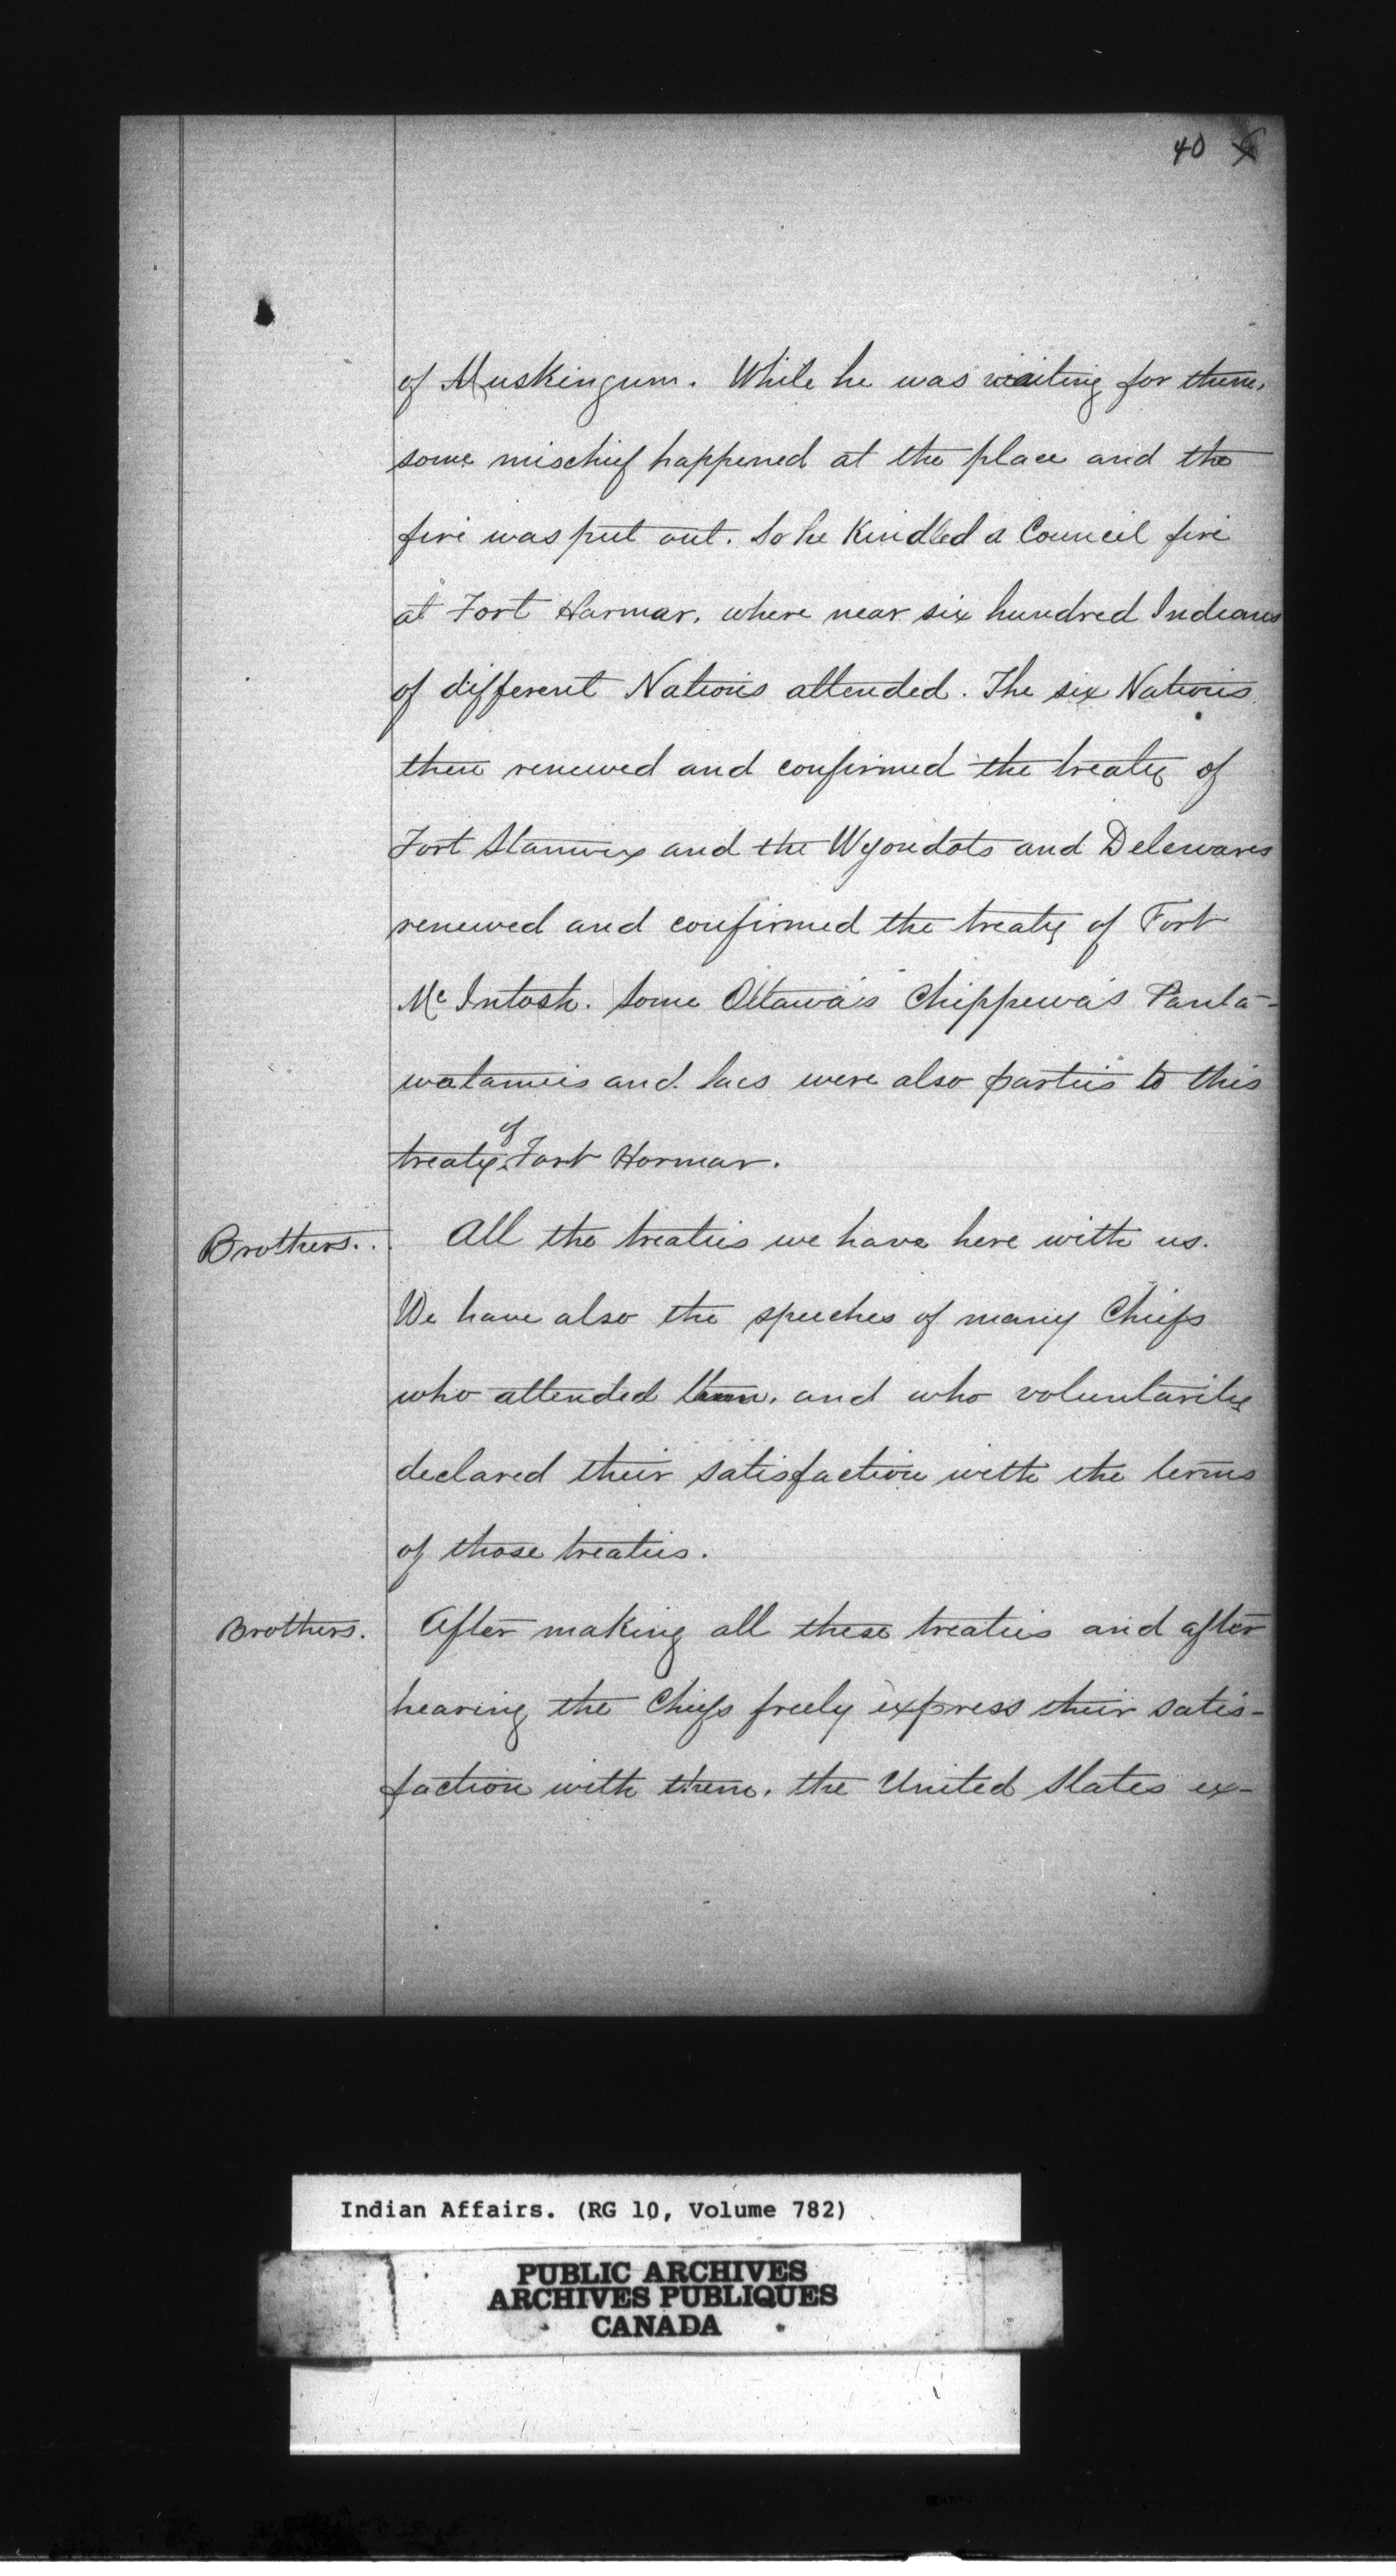 40
of Muskingum. While he was waiting for them,
some mischief happened at the place and the
fire was put out. So he Kindled a Council fire
at Fort Harmar, where near six hundred Indians
of different Nations attended. The six Nations
then renewed and confirmed the treaty of
Fort Stanwix and the Wyondots and Delewares
renewed and confirmed the treaty of Fort
Mc Intosh. Some Ottawa's Chippewa's Panta-
watamies and Sacs were also parties to this
treaty of Fort Hormar.
Brothers. All the treaties we have here with us.
We have also the speeches of many Chiefs
who attended them, and who voluntarily
declared their satisfaction with the terms
of those treaties.
Brothers. After making all these treaties and after
hearing the Chiefs freely express their satis-
faction with them, the United States ex-
Indian Affairs. (RG 10, Volume 782)
PUBLIC ARCHIVES
ARCHIVES PUBLIQUES
CANADA